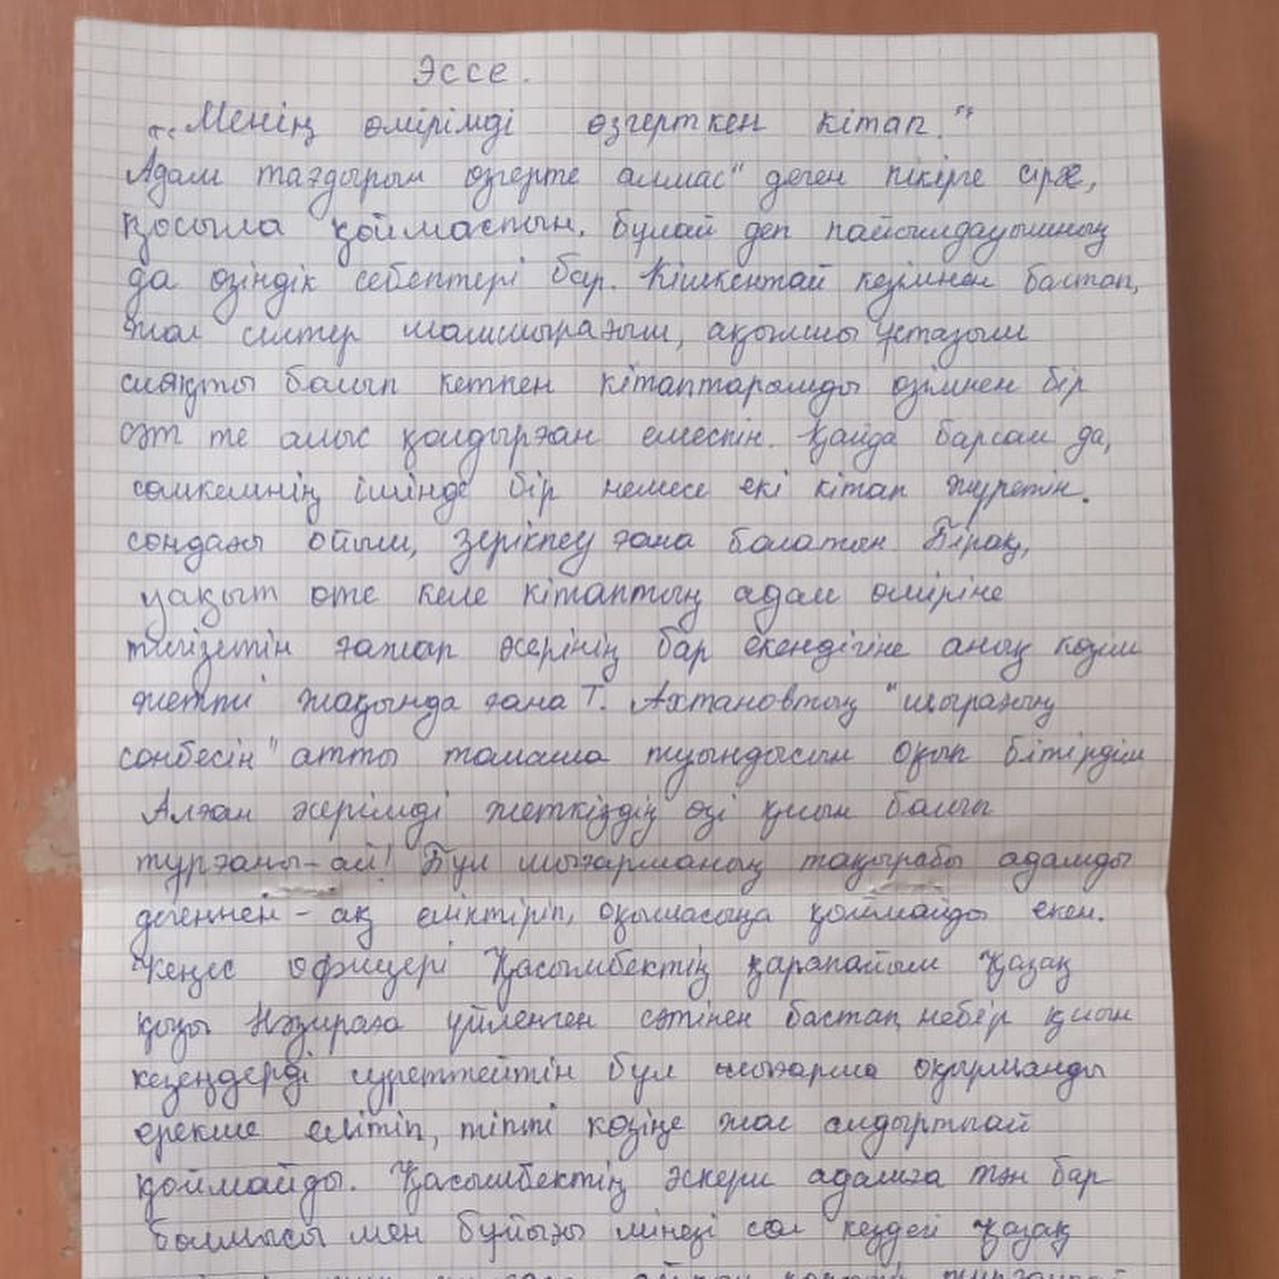 Эссе.
„Менің өмірімді өзгерткен кітап."
Адам тағдырын өзгерте алмас" деген пікірге сірә,
қосыла қоймаспын. Бұлай деп пайымдауымның
да өзіндік себептері бар. Кішкентай кезімнен бастап,
жол сілтер шамшырағым, ақылшы ұстазым
сияқты болып кеткен кітаптарымды өзімнен бір
сәт те алыс қалдырған емеспін. Қайда барсам да,
сөмкемнің ішінде бір немесе екі кітап жүретін.
сондағы ойым, зерікпеу ғана болатын Бірақ,
уақыт өте келе кітаптың адам өміріне
тигізетін ғажап әсерінің бар екендігіне анық көзім
жетті жақында ғана Т. Ахтановтың "шырағың
сөнбесін" атты тамаша туындысын оқып бітірдім
Алған әсерімді жеткіздің өзі қиын болып
тұрғаны-ай! Бұл шығарманың тақырабы адамды
дегеннен-ақ еліктіріп, оқымасыңа қоймайды екен.
Кеңес офицері Қасымбектің қарапайым қазақ
қызы Нәзираға үйленген сәтінен бастап, небір қиын
кезеңдерді суреттейтін бұл шығарма оқырманды
ерекше елітіп, тіпті көзіңе жас алдыртпай
қоймайды. Қасымбектің әскери адамға тән бар
болмысы мен бұйығы мінезі сол кездегі қазақ